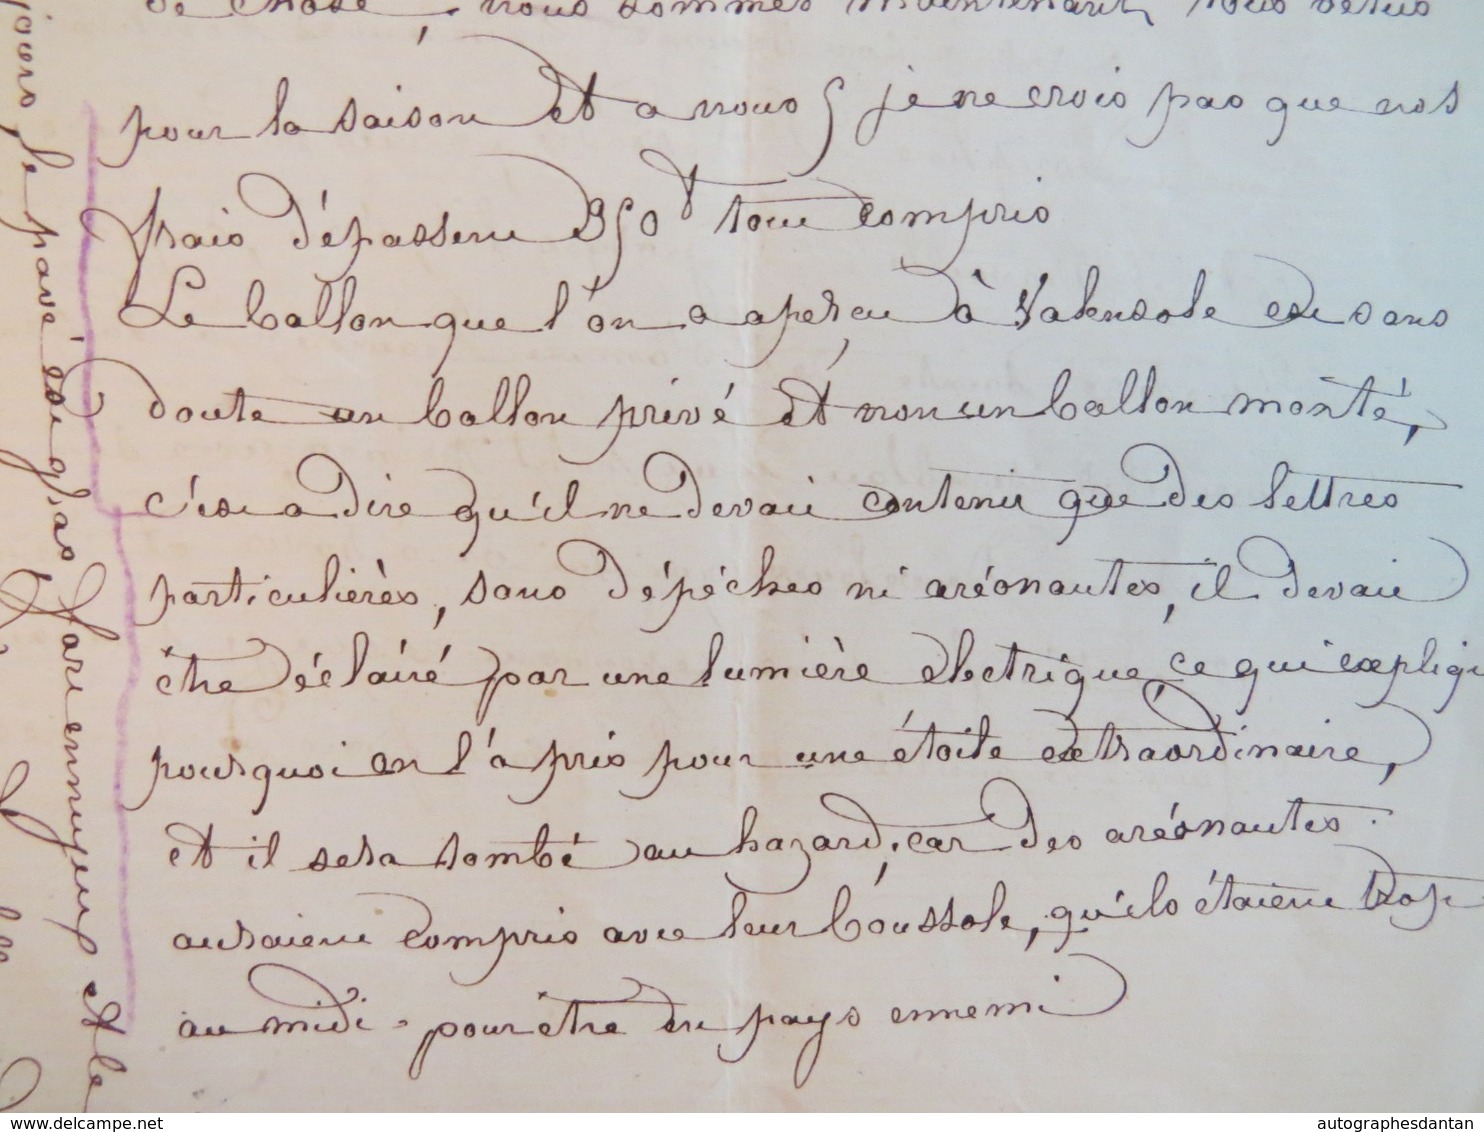 de chose, nous sommes maintenant, tous vetus
pour la saison et a nous 5 je ne crois pas que nos
frais dépassent 350f tout compris
Le ballon que l'on a aperçu à Valensole est sans
doute un ballon privé et non un ballon monté,
c'est a dire qu'il ne devait contenir que des lettres
particulières, sans dépéches ni aréonautes, il devait
être éclairé par une lumière electrique ce qui expliqu
pourquoi on l'a pris pour une étoile extraordinaire,
et il sera tombé au hazard, car des aréonautes
auraient compris avec leur boussole, qu'ils étaient trop
au midi pour être en pays ennemi
jours, le pavé est gras
fort ennuyeux et le
autographesdantan
www.delcampe.net